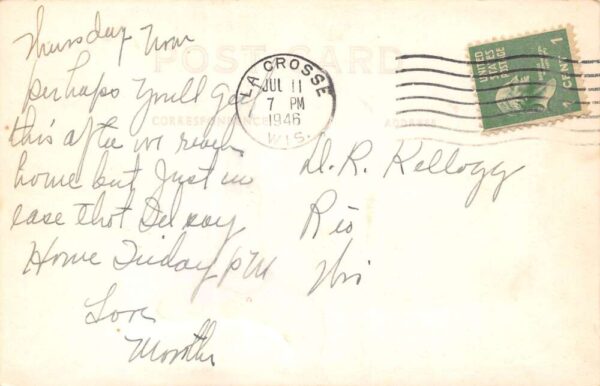 Thursday Nov
POST CARD
perhaps you'll get
this after we reach
home but just in
case that I'd say
Home Friday pM
Love
Mother
CORRESPONDENCE
ADDRESS
LA CROSSE
JUL 11
7 PM
1946
WIS.
UNITED
STATES
POSTAGE
1
CENT
1
D. R. Kellogg
Rio
Wis